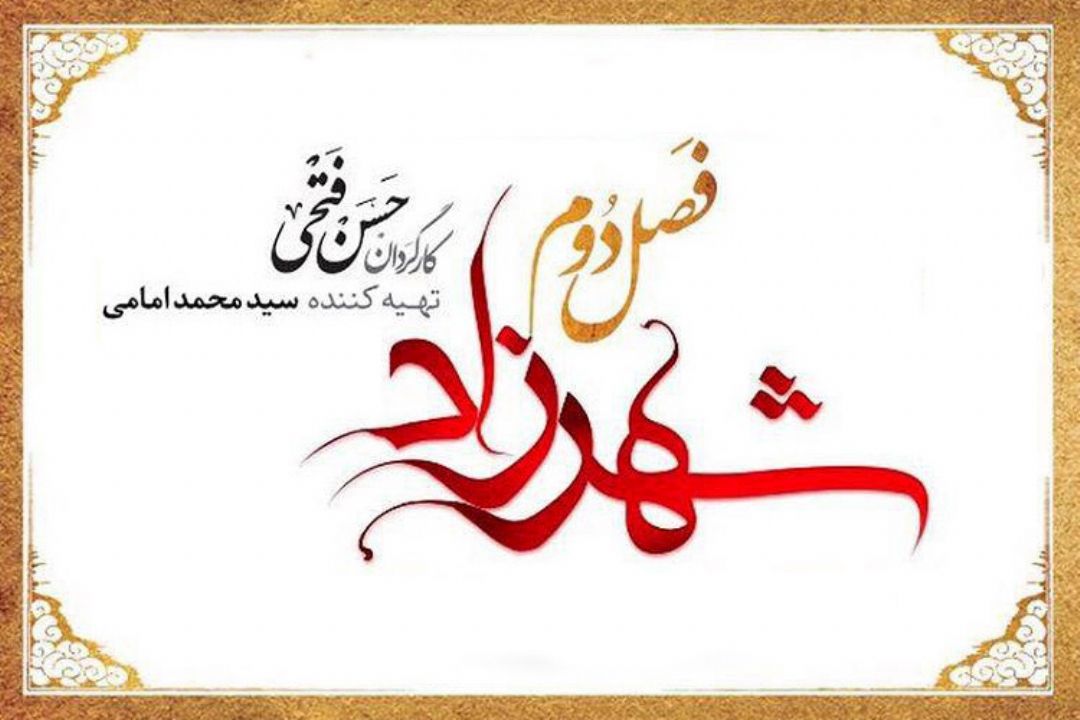 فصل دوم
شهرزاد
کارگردان حسن فتحی
تهیه کننده سید محمد امامی